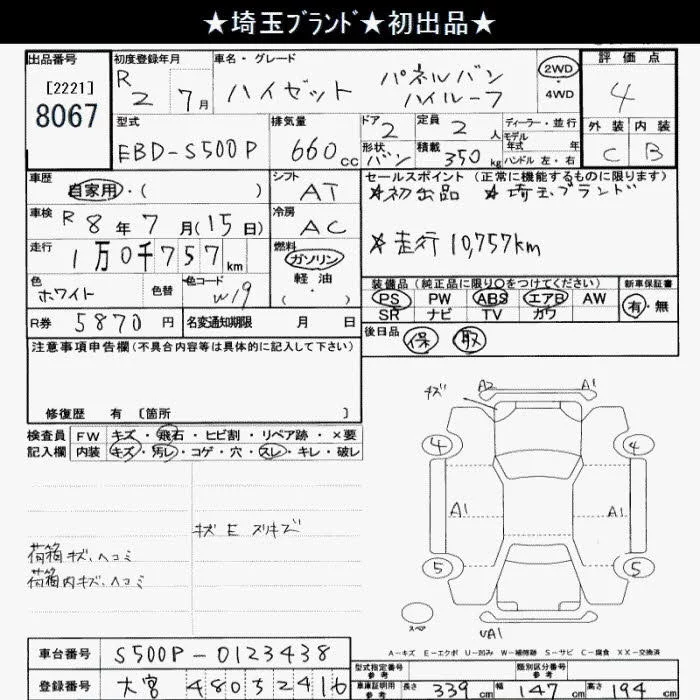 ★埼玉ﾌﾞﾗﾝﾄﾞ★初出品★
出品番号 初度登録年月 車名・グレード 評価点
[2221] R 2 7月 ハイゼット パネルバン ハイルーフ 2WD・4WD 4
8067
型式 排気量 ドア 2 定員 2 人 ディーラー・並行 外装 内装
EBD-S500P 660cc 形状 バン 積載 350kg モデル年式 年 ハンドル 左・右 C B
車歴 シフト セールスポイント (正常に機能するものに限ります)
自家用・( ) AT ★初出品 ★埼玉ブランド
車検 R 8年7月(15日) 冷房 AC
走行 1万0千757km 燃料 ★走行10,757km
ガソリン
軽油・( )
色 色替 色コード 装備品(純正品に限り○をつけてください) 新車保証書
ホワイト W19 PS PW ABS エアB AW 有・無
SR ナビ TV カワ
R券 5870円 名変通知期限 月 日 後日品 保 取
注意事項申告欄(不具合内容等は具体的に記入して下さい)
修復歴 有 〔箇所 〕
検査員 FW キズ・飛石・ヒビ割・リペア跡・×要
記入欄 内装 キズ・汚レ・コゲ・穴・スレ・キレ・破レ
キズ A2 A1
4 4
A1 A1
キズ E スリキズ
荷箱キズ、ヘコミ
荷箱内キズ、ヘコミ
5 5
スペア
UA1
A-キズ E-エクボ U-凹み W-補修跡 S-サビ C-腐食 XX-交換済
車台番号 S500P-0123438
型式指定番号 参考 類別区分番号 参考
登録番号 大宮 480 5 2416
車庫証明用 参考 長さ 339cm 幅 147cm 高さ 194cm